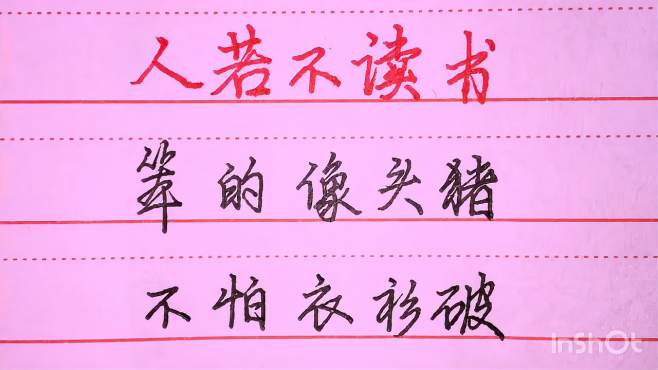 人若不读书
笨的像头猪
不怕衣衫破
InShOt